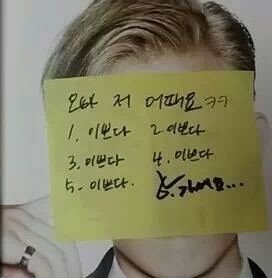 오빠 저 어때요 ㅋㅋ
1. 이쁘다 2. 이쁘다
3. 이쁘다 4. 이쁘다
5. 이쁘다.